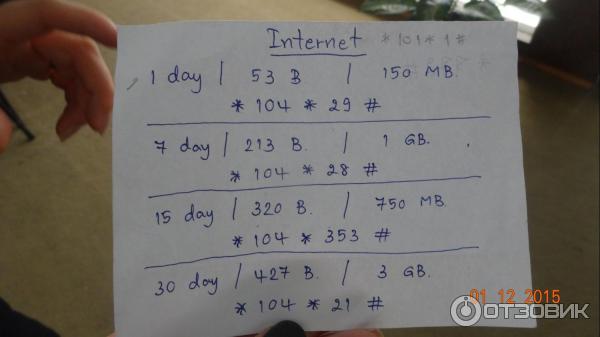 Internet *101*1#
1 day / 53 B / 150 MB.
* 104 * 29 #
7 day / 213 B. / 1 GB.
* 104 * 28 #
15 day / 320 B. / 750 MB.
* 104 * 353 #
30 day / 427 B. / 3 GB.
* 104 * 21 #
01 12 2015
ОТЗОВИК